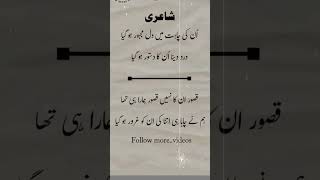 شاعری
اُن کی چاہت میں دل مجبور ہو گیا
درد دینا اُن کا دستور ہو گیا
قصور ان کا نہیں قصور ہمارا ہی تھا
ہم نے چاہا ہی اتنا کی ان کو غرور ہو گیا
Follow more_videos